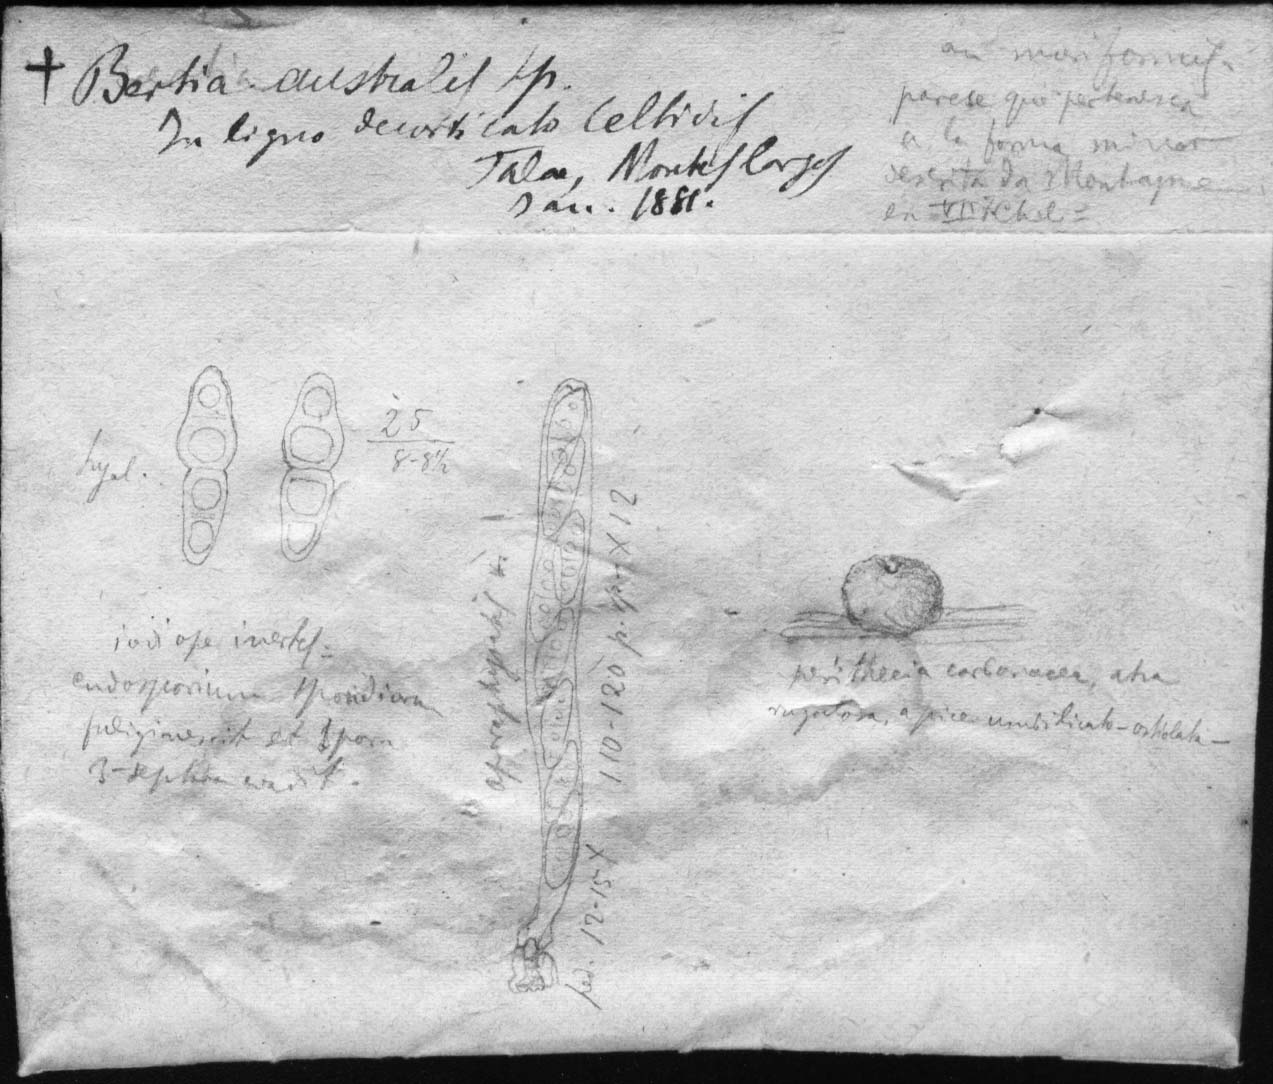 † Bertia australis Sp.
In ligno decorticato Celtidis
Tala, Montes largos
Jan. 1881.
an moriformis
parese que pertenesca
a la forma minor
descrita da Montagne
en
hyal.
25
8-8½
iodi ope inertes
endosporium sporidiorum
fuliginescit et spora
3-septata evadit.
aparaphysatis
110-120 p. sp. X 12
ped. 12-15 X
perithecia carbonacea, atra
rugulosa, apice umbilicato-ostiolata